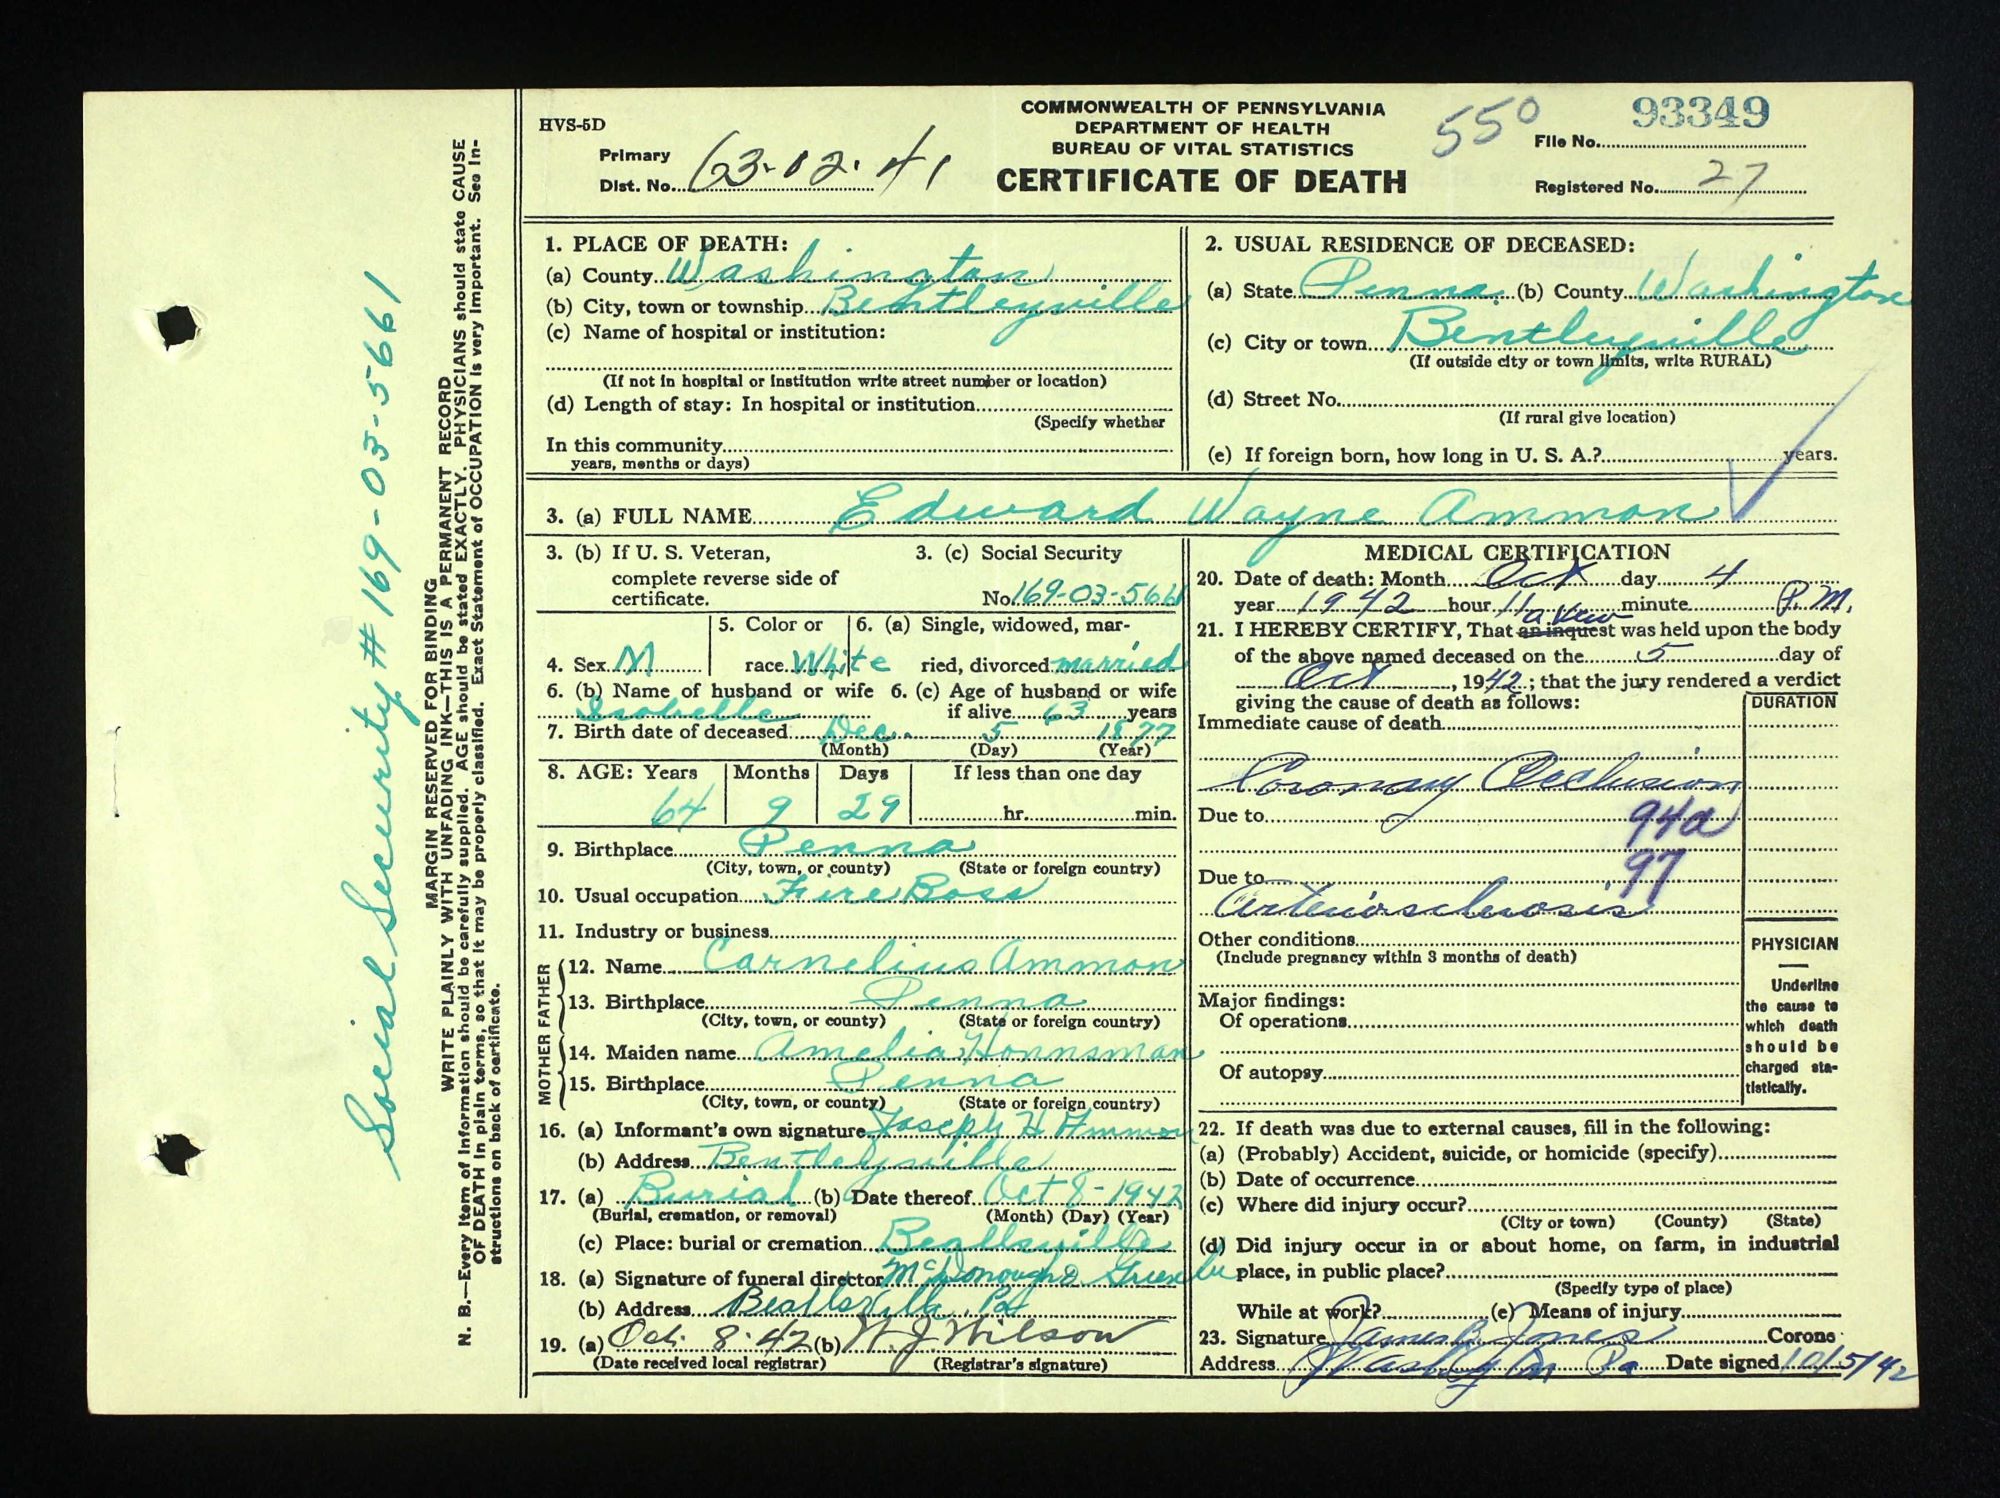 HVS-5D
COMMONWEALTH OF PENNSYLVANIA
DEPARTMENT OF HEALTH
BUREAU OF VITAL STATISTICS
CERTIFICATE OF DEATH
Primary
Dist. No. 63-02-41
550
File No. 93349
Registered No. 27
Social Security # 169-03-5661
MARGIN RESERVED FOR BINDING
WRITE PLAINLY WITH UNFADING INK—THIS IS A PERMANENT RECORD
N. B.—Every item of information should be carefully supplied. AGE should be stated EXACTLY. PHYSICIANS should state CAUSE
OF DEATH in plain terms, so that it may be properly classified. Exact Statement of OCCUPATION is very important. See In-
structions on back of certificate.
1. PLACE OF DEATH:
(a) County Washington
(b) City, town or township Bentleyville
(c) Name of hospital or institution:
(If not in hospital or institution write street number or location)
(d) Length of stay: In hospital or institution
(Specify whether
In this community
years, months or days)
2. USUAL RESIDENCE OF DECEASED:
(a) State Penna. (b) County Washington
(c) City or town Bentleyville
(If outside city or town limits, write RURAL)
(d) Street No.
(If rural give location)
(e) If foreign born, how long in U. S. A.? years.
3. (a) FULL NAME Edward Wayne Ammon
3. (b) If U. S. Veteran,
complete reverse side of
certificate.
3. (c) Social Security
No. 169-03-5661
4. Sex M
5. Color or
race White
6. (a) Single, widowed, mar-
ried, divorced married
6. (b) Name of husband or wife
Isobelle
6. (c) Age of husband or wife
if alive 63 years
7. Birth date of deceased Dec. 5 1877
(Month) (Day) (Year)
8. AGE: Years Months Days If less than one day
64 9 29 hr. min.
9. Birthplace Penna
(City, town, or county) (State or foreign country)
10. Usual occupation Fire Boss
11. Industry or business
FATHER
12. Name Cornelius Ammon
13. Birthplace Penna
(City, town, or county) (State or foreign country)
MOTHER
14. Maiden name Amelia Honnsman
15. Birthplace Penna
(City, town, or county) (State or foreign country)
16. (a) Informant's own signature Joseph H Ammon
(b) Address Bentleyville
17. (a) Burial (b) Date thereof Oct 8-1942
(Burial, cremation, or removal) (Month) (Day) (Year)
(c) Place: burial or cremation Beallsville
18. (a) Signature of funeral director McDonough &
(b) Address Beallsville, Pa
19. (a) Oct. 8-42 (b) W. J. Wilson
(Date received local registrar) (Registrar's signature)
MEDICAL CERTIFICATION
20. Date of death: Month Oct day 4
year 1942 hour 11 minute P.M.
a view
21. I HEREBY CERTIFY, That an inquest was held upon the body
of the above named deceased on the 5 day of
Oct, 1942; that the jury rendered a verdict
giving the cause of death as follows:
DURATION
Immediate cause of death
Coronary Occlusion
Due to 94a
97
Due to
Arteriosclerosis
Other conditions
(Include pregnancy within 3 months of death)
Major findings:
Of operations
Of autopsy
PHYSICIAN
Underline
the cause to
which death
should be
charged sta-
tistically.
22. If death was due to external causes, fill in the following:
(a) (Probably) Accident, suicide, or homicide (specify)
(b) Date of occurrence
(c) Where did injury occur?
(City or town) (County) (State)
(d) Did injury occur in or about home, on farm, in industrial
place, in public place?
(Specify type of place)
While at work? (e) Means of injury
23. Signature James B. Jones Corone
Address Washington Pa Date signed 10/5/42